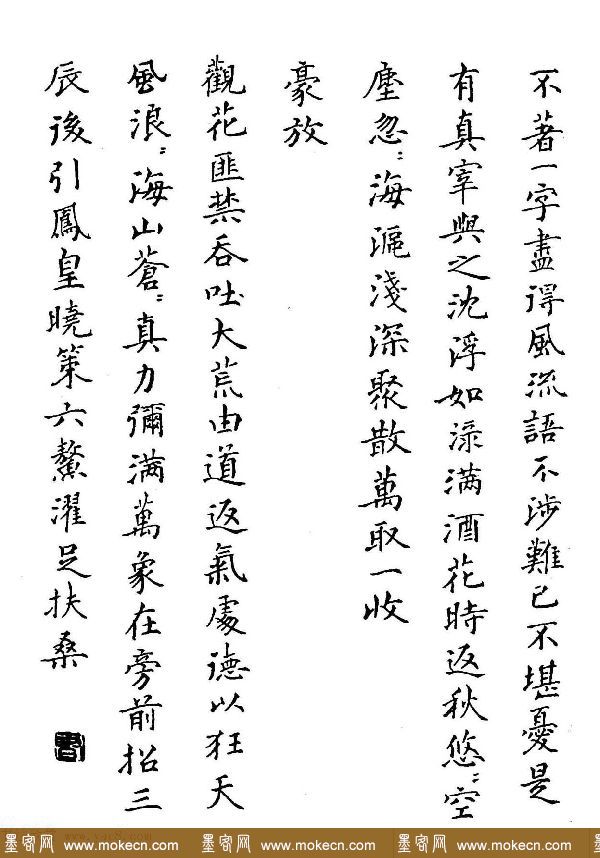 不著一字盡得風流語不涉難已不堪憂是
有真宰與之沈浮如淥满酒花時返秋悠〻空
塵忽〻海漚淺深聚散萬取一收
豪放
觀花匪禁吞吐大荒由道返氣處德以狂天
風浪〻海山蒼〻真力彌满萬象在旁前招三
辰後引鳳皇曉策六鰲濯足扶桑
墨客网 www.mokecn.com 墨客网 www.mokecn.com 墨客网 www.mokecn.com